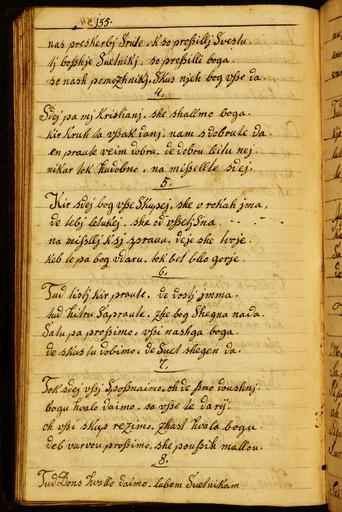 135.
nas preskerbj Srute, k so proßillj Svestu
tj boßhje Suetnikj, so proßilli boga
so nash pomozhnikj, Skus njeh bog vße da
4.
Sdej pa mj Kristianj, ske shallmo boga
kir Kruh ta vßak danj, nam s dobrute da,
en praute veim dobru, de dobru leitu nej
nikar tok hudobno, na mißellte sdej.
5.
Kir sdej bog vße Skusej, ske v rokah jma,
de tebj letukej, ske od vßeh Sna
na mißllj k sj sprauu, deje ske tvoje
keb te pa bog vdaru, tok bel bllo gorje.
6.
Tud tistj kir praute, de dostj jmma
tud hitru Sapraute, zhe bog Shegna nada
Satu pa proßimo, vßi nashga boga
de skus tu dobimo, de Suet shegen da.
7.
Tok sdej vßj Spoßnaimo, ok de ßmo doushnj
bogu hvalo daimo, sa vße te darÿ.
ok vßi skup rezimo, zhast hvala bogu
deb varvou proßimo, ske poußik mallou.
8.
Tud Dons hvallo daimo, labem Suetnikam